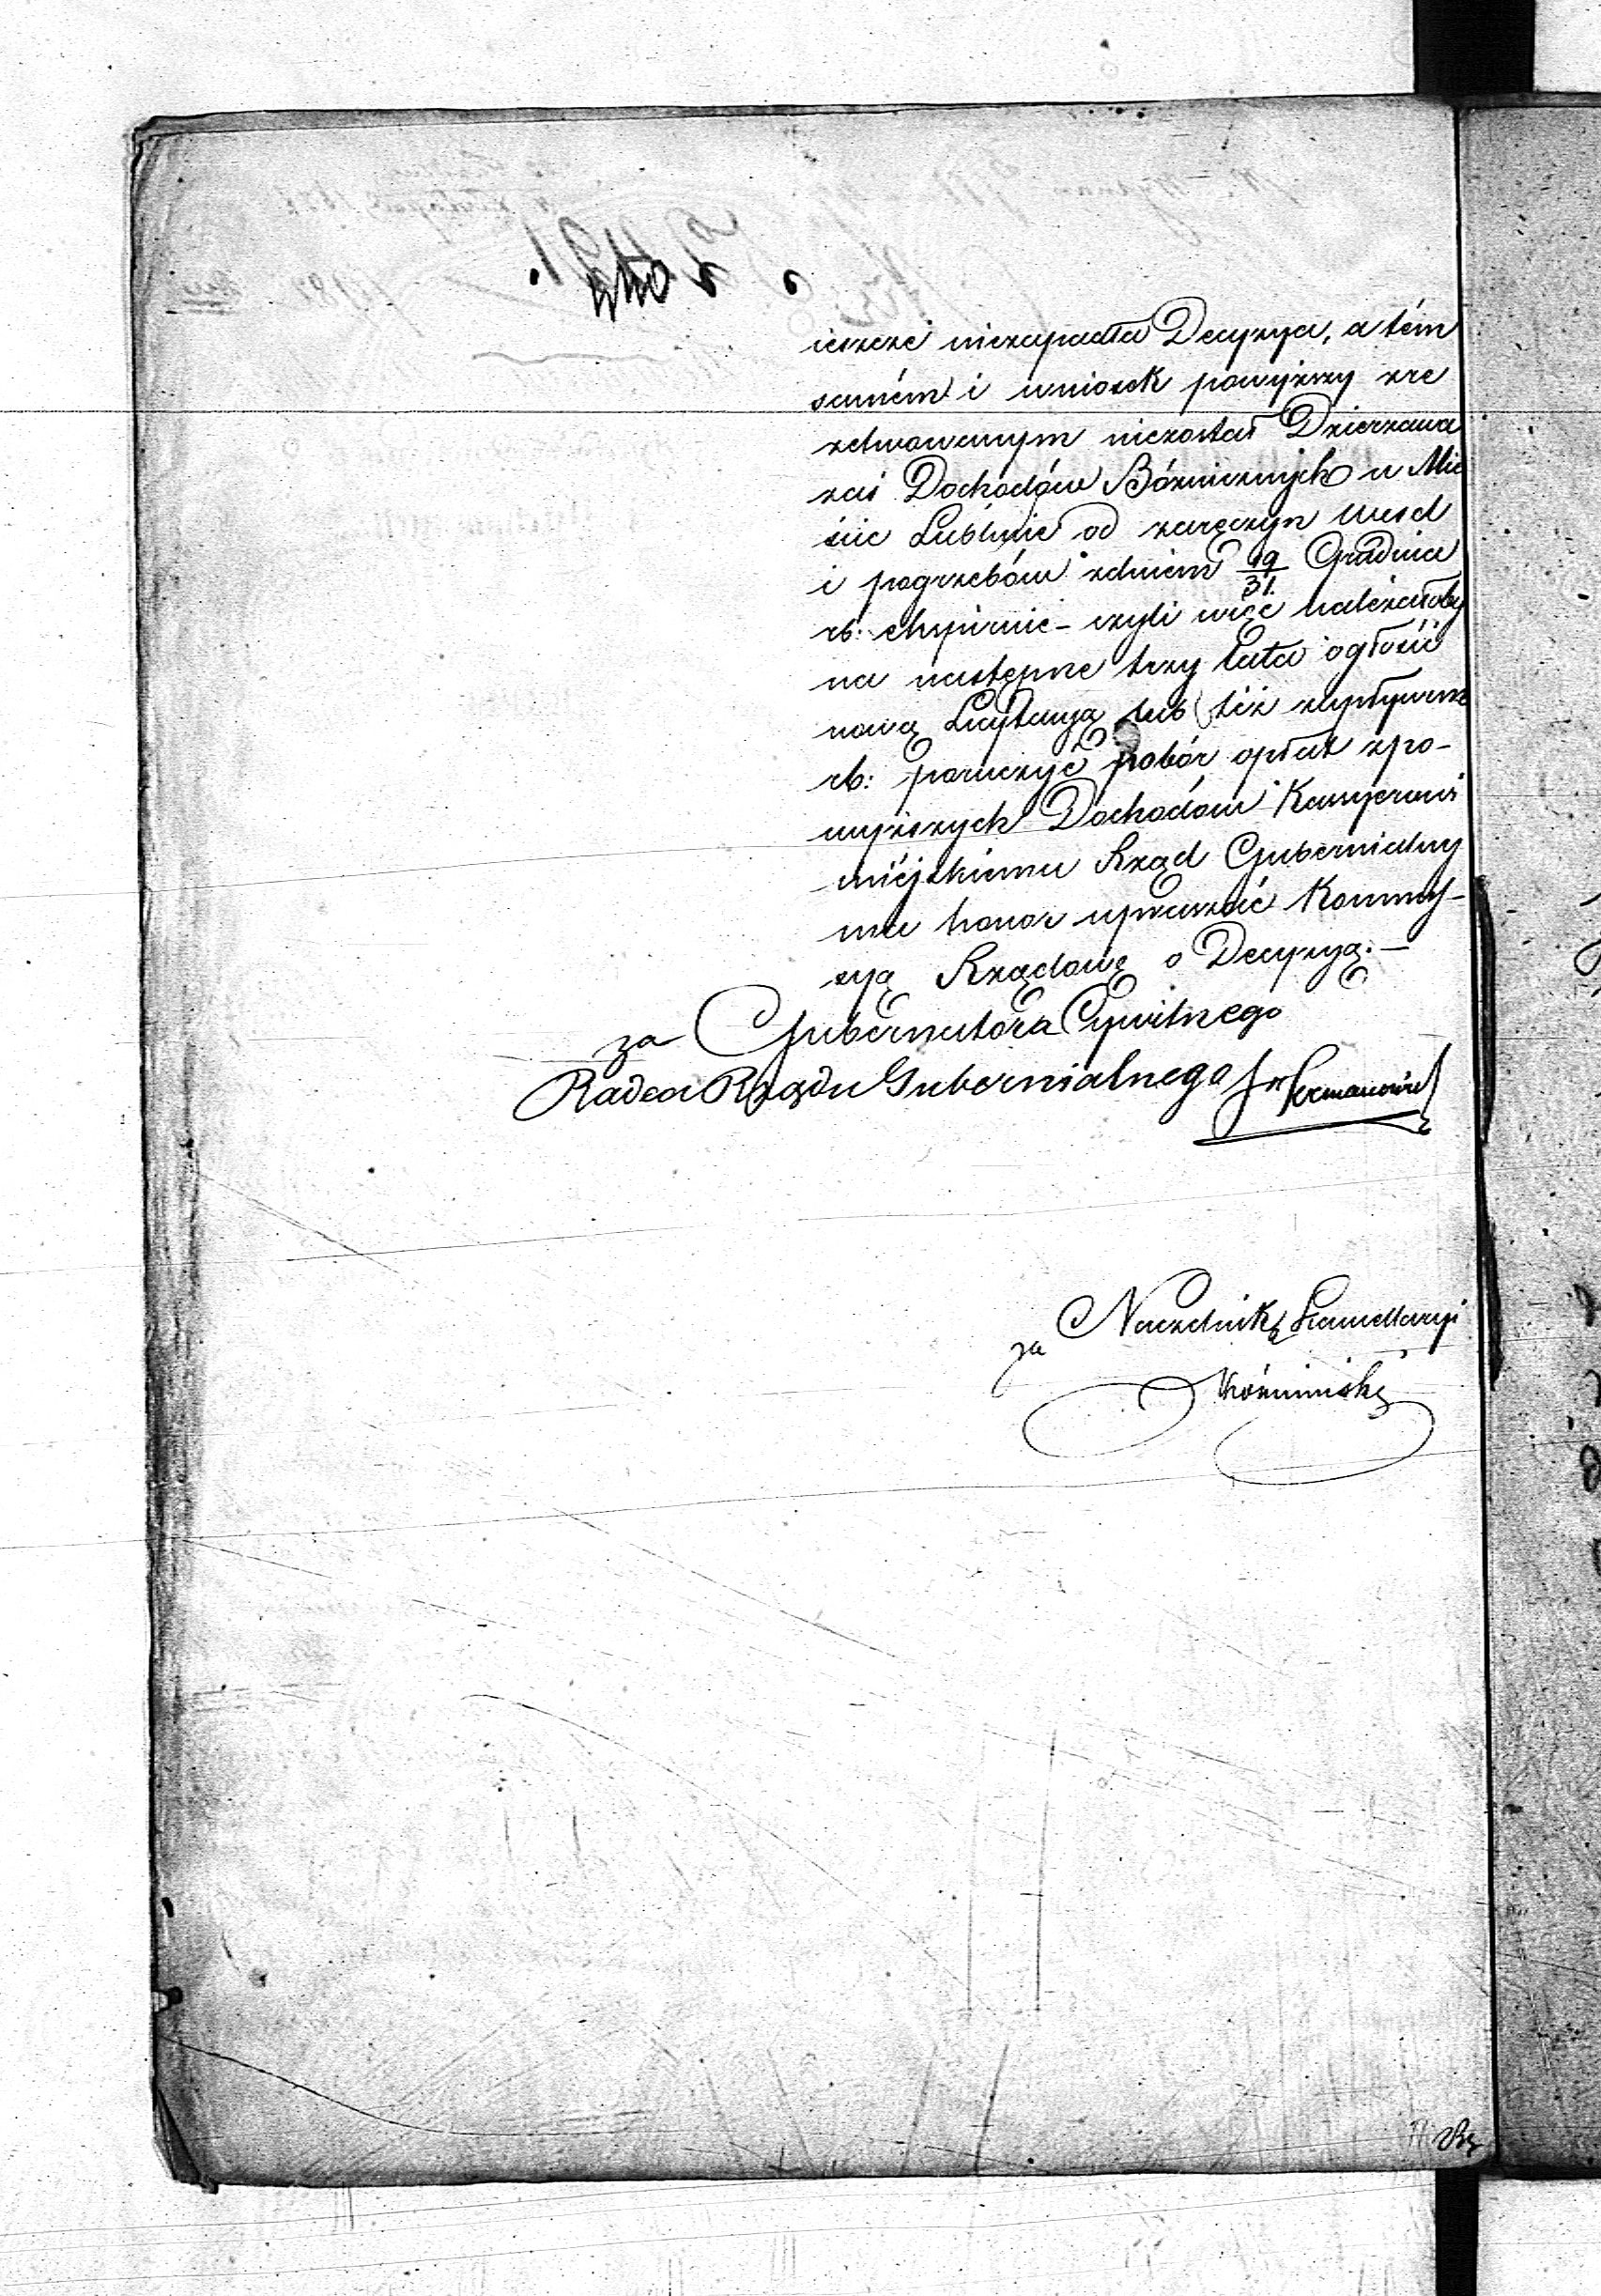 ieszcze niezapadła Decyzya, a tém
samém i wniosek powyższy zre
zelwowanym niezostał Dzierzawa
zaś Dochodów Bóżnicznych w Mie
ście Lublinie od zaręczyn wesel
i pogrzebów zdniem 19/31. Grudnia
rb: expiruie - czyli więc należałoby
na następne trzy lata ogłosić
nową Licytacyą lub téż zupływem
rb: poruczyć pobór opłat zpo-
wyższych Dochodów Kassyerowi
miéjskiemu Rząd Gubernialny
ma honor upraszać Kommis-
syą Rządową o Decyzyą. -
za Gubernatora Cywilnego
Radca Rządu Gubernialnego
za Naczelnika Kancellaryi
Koźmiński